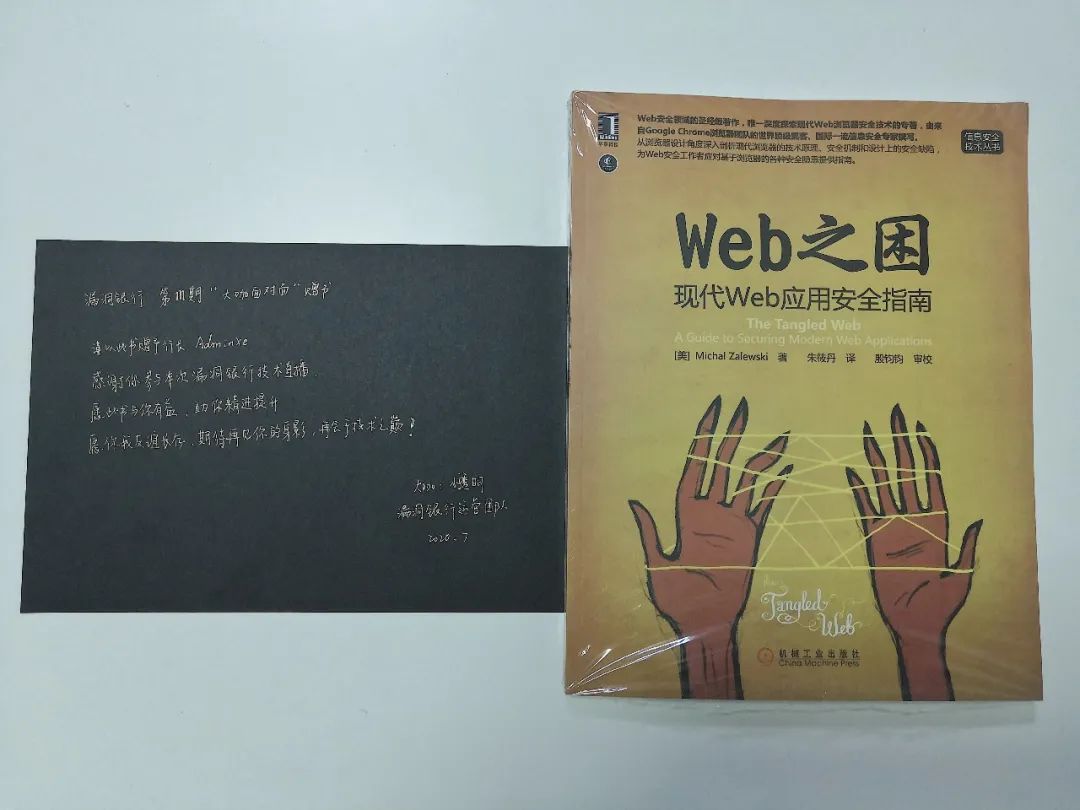 漏洞银行 第111期“大咖面对面”赠书
谨以此书赠予行长 Adminxe
感谢你参与本次漏洞银行技术直播，
愿此书与你有益，助你精进提升
愿你我友谊长存，期待再见你的身影，再会于技术之巅！
大咖：
漏洞银行运营团队
2020.7
华章科技
Web安全领域的圣经级著作，唯一深度探索现代Web浏览器安全技术的专著，由来
自Google Chrome浏览器团队的世界顶级黑客、国际一流信息安全专家撰写。
从浏览器设计角度深入剖析现代浏览器的技术原理、安全机制和设计上的安全缺陷，
为Web安全工作者应对基于浏览器的各种安全隐患提供指南。
信息安全
技术丛书
Web之困
现代Web应用安全指南
The Tangled Web
A Guide to Securing Modern Web Applications
[美] Michal Zalewski 著 朱筱丹 译 殷钧钧 审校
Tangled
Web
机械工业出版社
China Machine Press